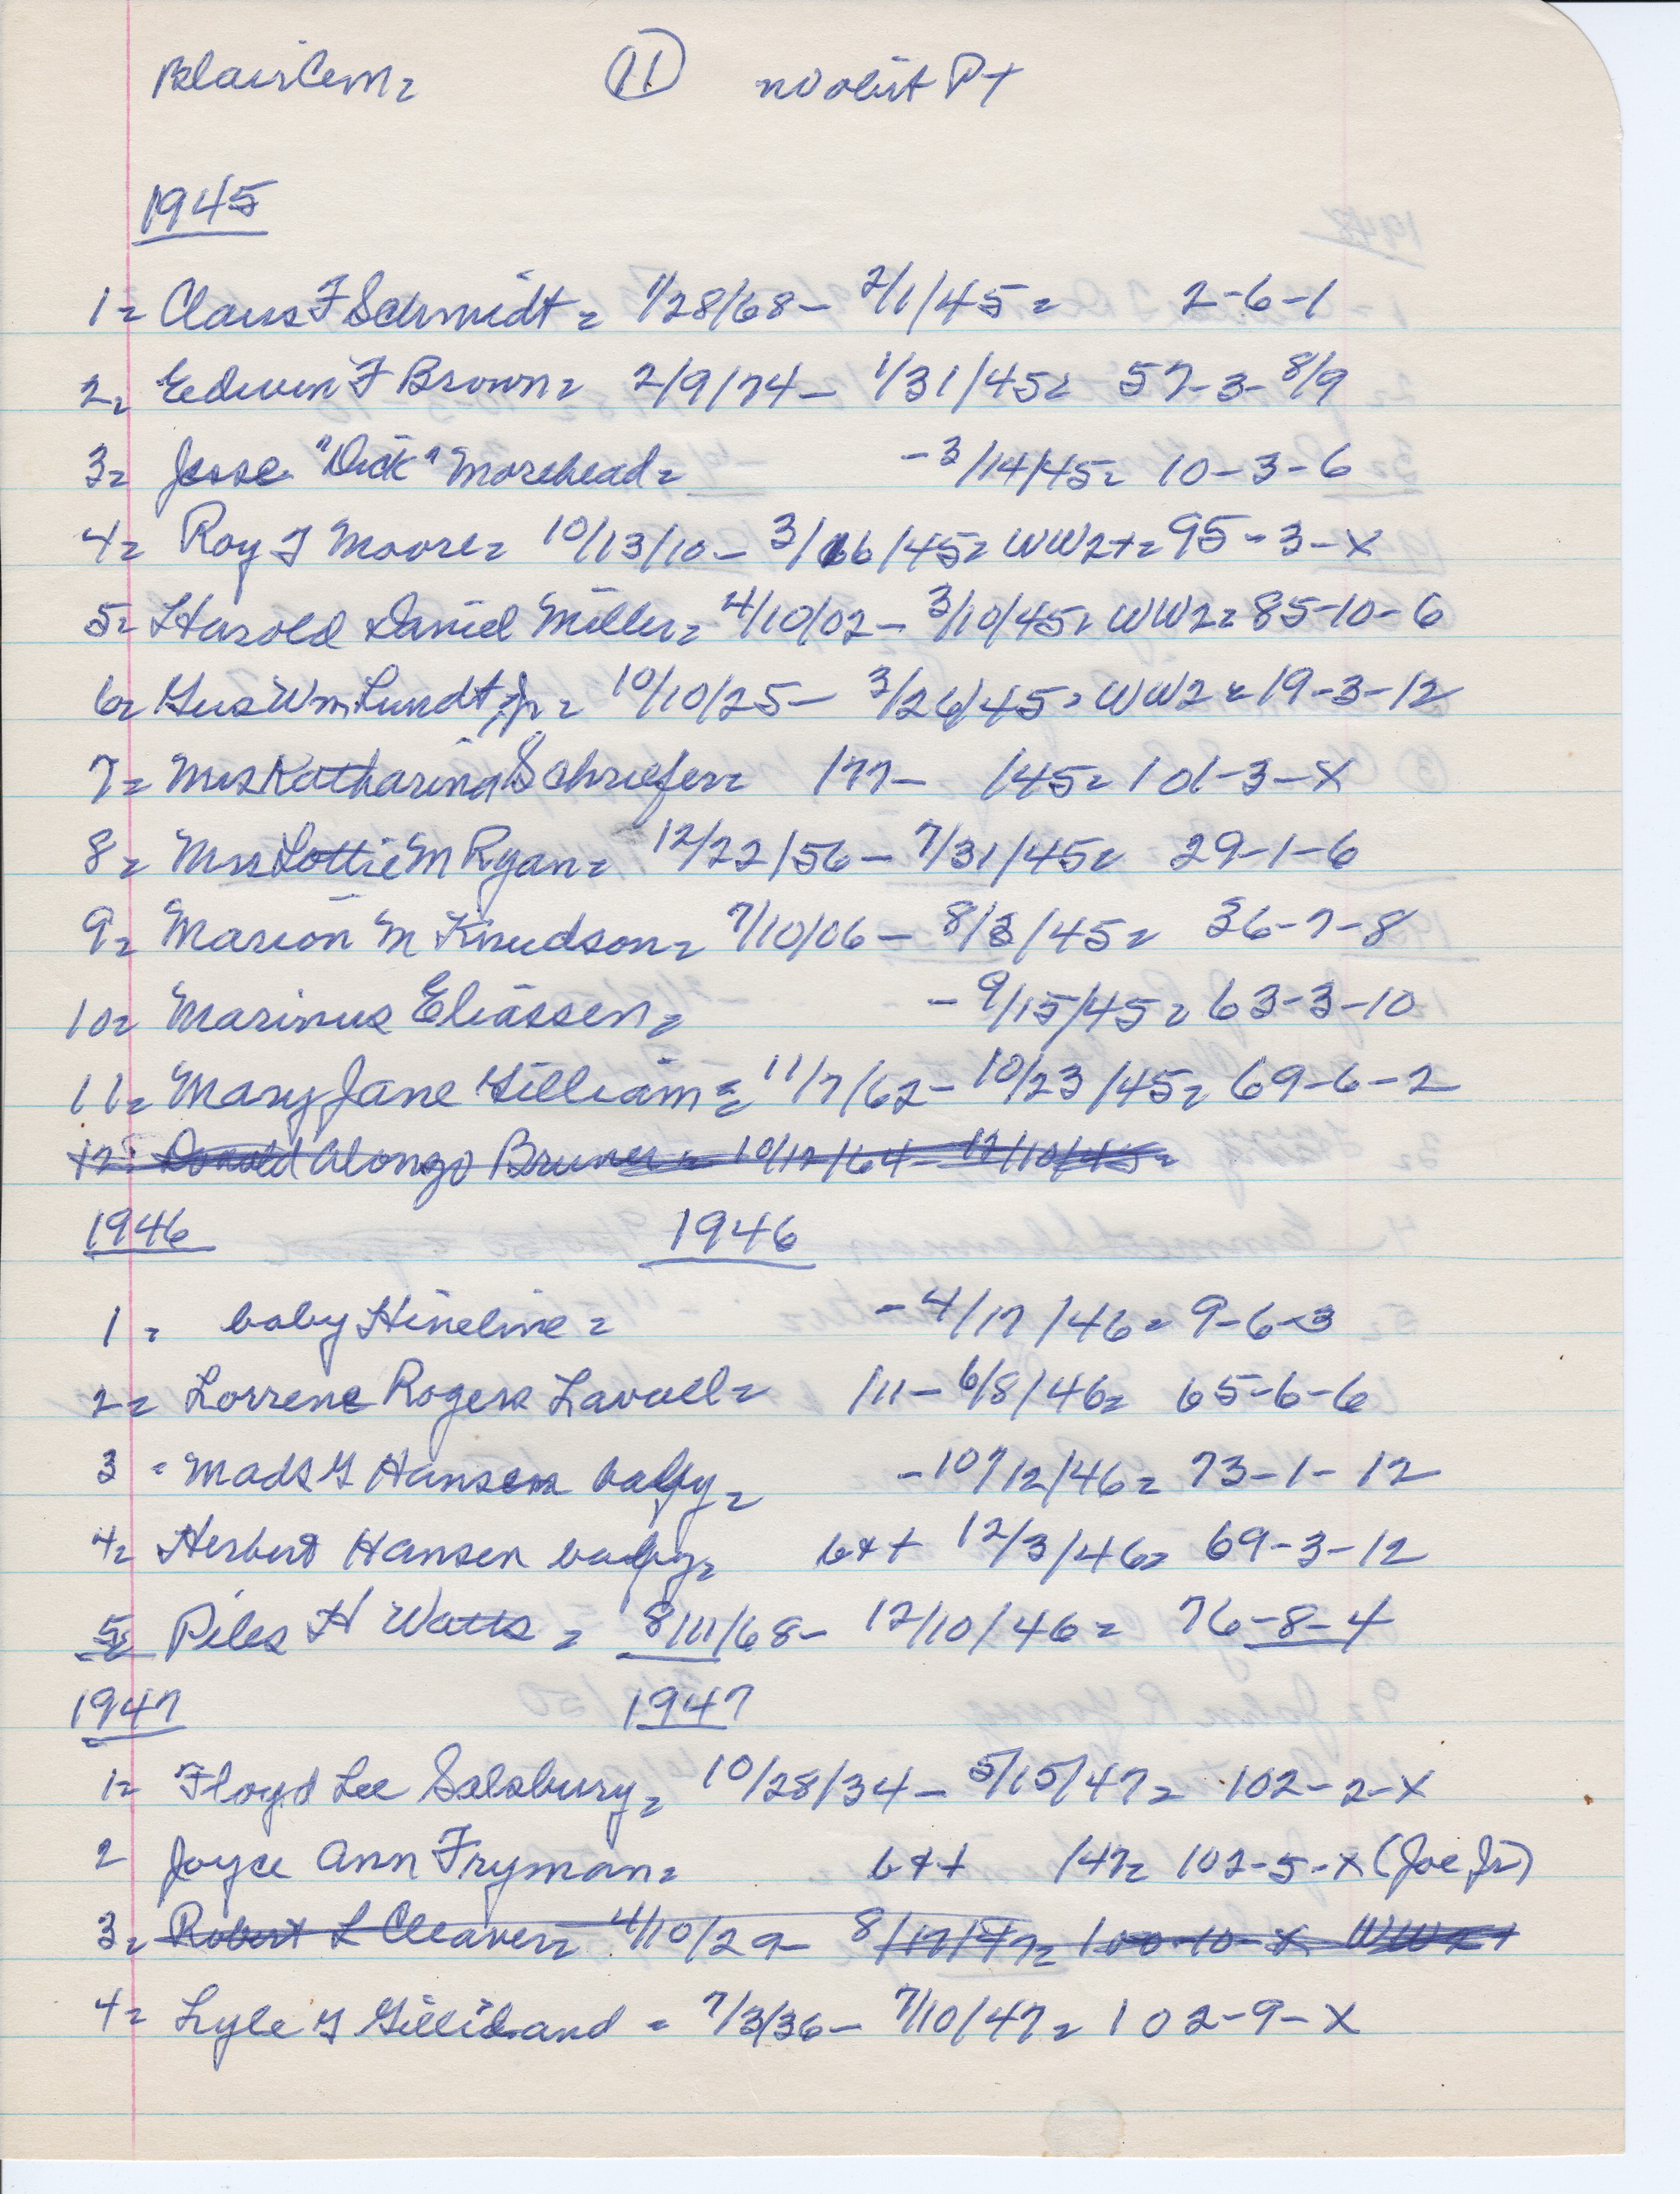 Blair Cem= (11) no obit PT
1945
1= Claus F Schmidt = 1/28/68 - 2/1/45= 2-6-1
2= Edwin F Brown= 2/9/74 - 1/31/45= 57-3-8/9
3= Jesse "Dick" Morehead= -3/14/45= 10-3-6
4= Roy J Moore= 10/13/10 - 3/16/45= WW2+= 95-3-X
5= Harold Daniel Miller= 4/10/02 - 3/10/45= WW2= 85-10-6
6= Gus Wm Lundt Jr= 10/10/25 - 3/26/45= WW2= 19-3-12
7= Mrs Katharina Schriefer= /77- /45= 101-3-X
8= Mrs Lottie M Ryan= 12/22/56 - 7/31/45= 29-1-6
9= Marion M Knudson= 7/10/06 - 8/3/45= 36-7-8
10= Marinus Eliassen= -9/15/45= 63-3-10
11= Mary Jane Gilliam= 11/7/62 - 10/23/45= 69-6-2
12= Donald Alongo Bruner= 10/17/64 - 12/10/45=
1946 1946
1= baby Hineline= -4/17/46= 9-6-3
2= Lorrene Rogers Lavall= /11- 6/8/46= 65-6-6
3= Mads G Hansen baby= -10/12/46= 73-1-12
4= Herbert Hansen baby= b&+ 12/3/46= 69-3-12
5= Piles H Watts= 8/11/68- 12/10/46= 76-8-4
1947 1947
1= Floyd Lee Salsbury= 10/28/34 - 5/15/47= 102-2-X
2 Joyce Ann Fryman= b&+ /47= 102-5-X (Joe Jr)
3= Robert L Cleaver= 4/10/29- 8/17/47= 100-10-X WW2+
4= Lyle G Gilliland = 7/3/36- 7/10/47= 102-9-X